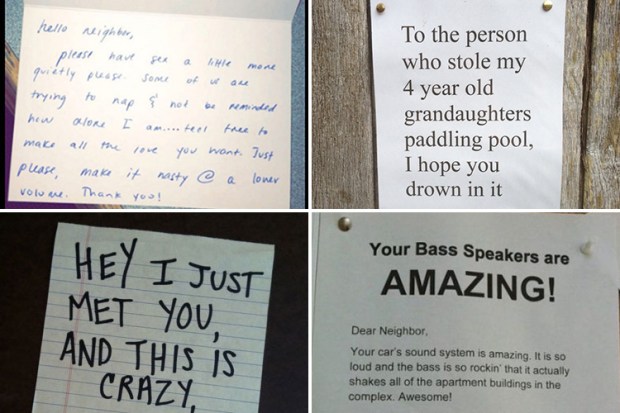 hello neighbor,
please have sex a little more
quietly please. Some of us are
trying to nap & not be reminded
how alone I am.... feel free to
make all the love you want. Just
please, make it nasty @ a lower
volume. Thank you!
To the person
who stole my
4 year old
grandaughters
paddling pool,
I hope you
drown in it
HEY I JUST
MET YOU,
AND THIS IS
CRAZY,
Your Bass Speakers are
AMAZING!
Dear Neighbor,
Your car's sound system is amazing. It is so
loud and the bass is so rockin' that it actually
shakes all of the apartment buildings in the
complex. Awesome!